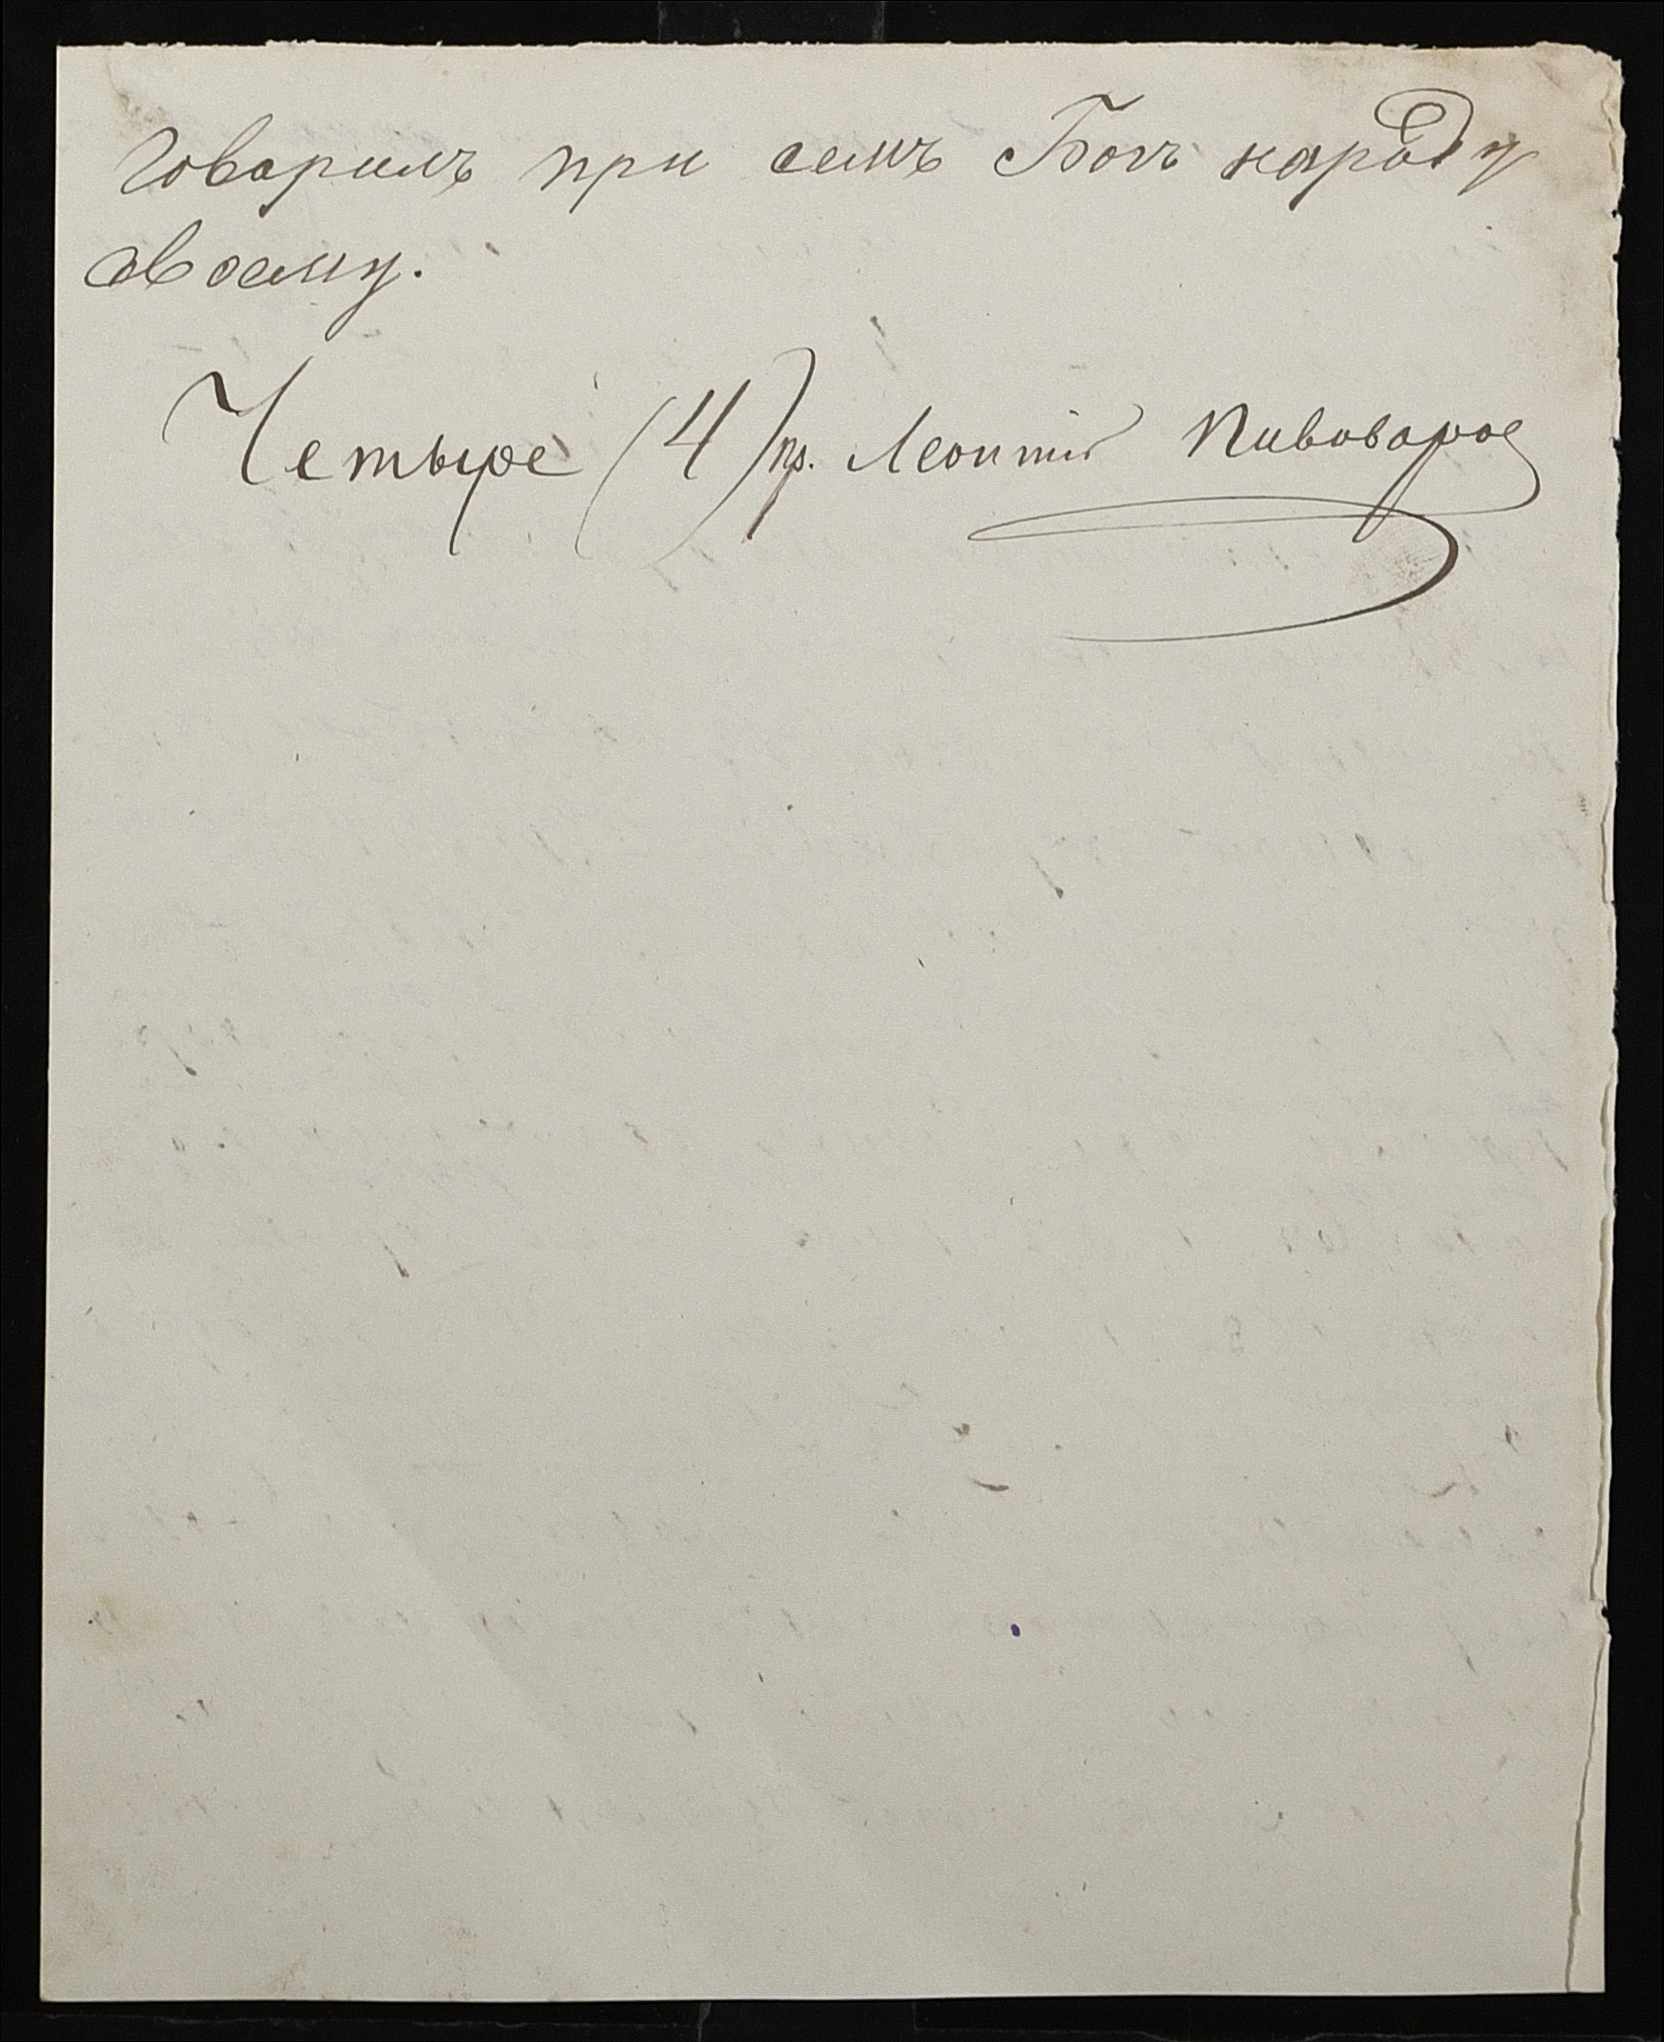 говорилъ при семъ Богъ народу
своему.
Четыре (4) пр. Леонтій Пивоваров